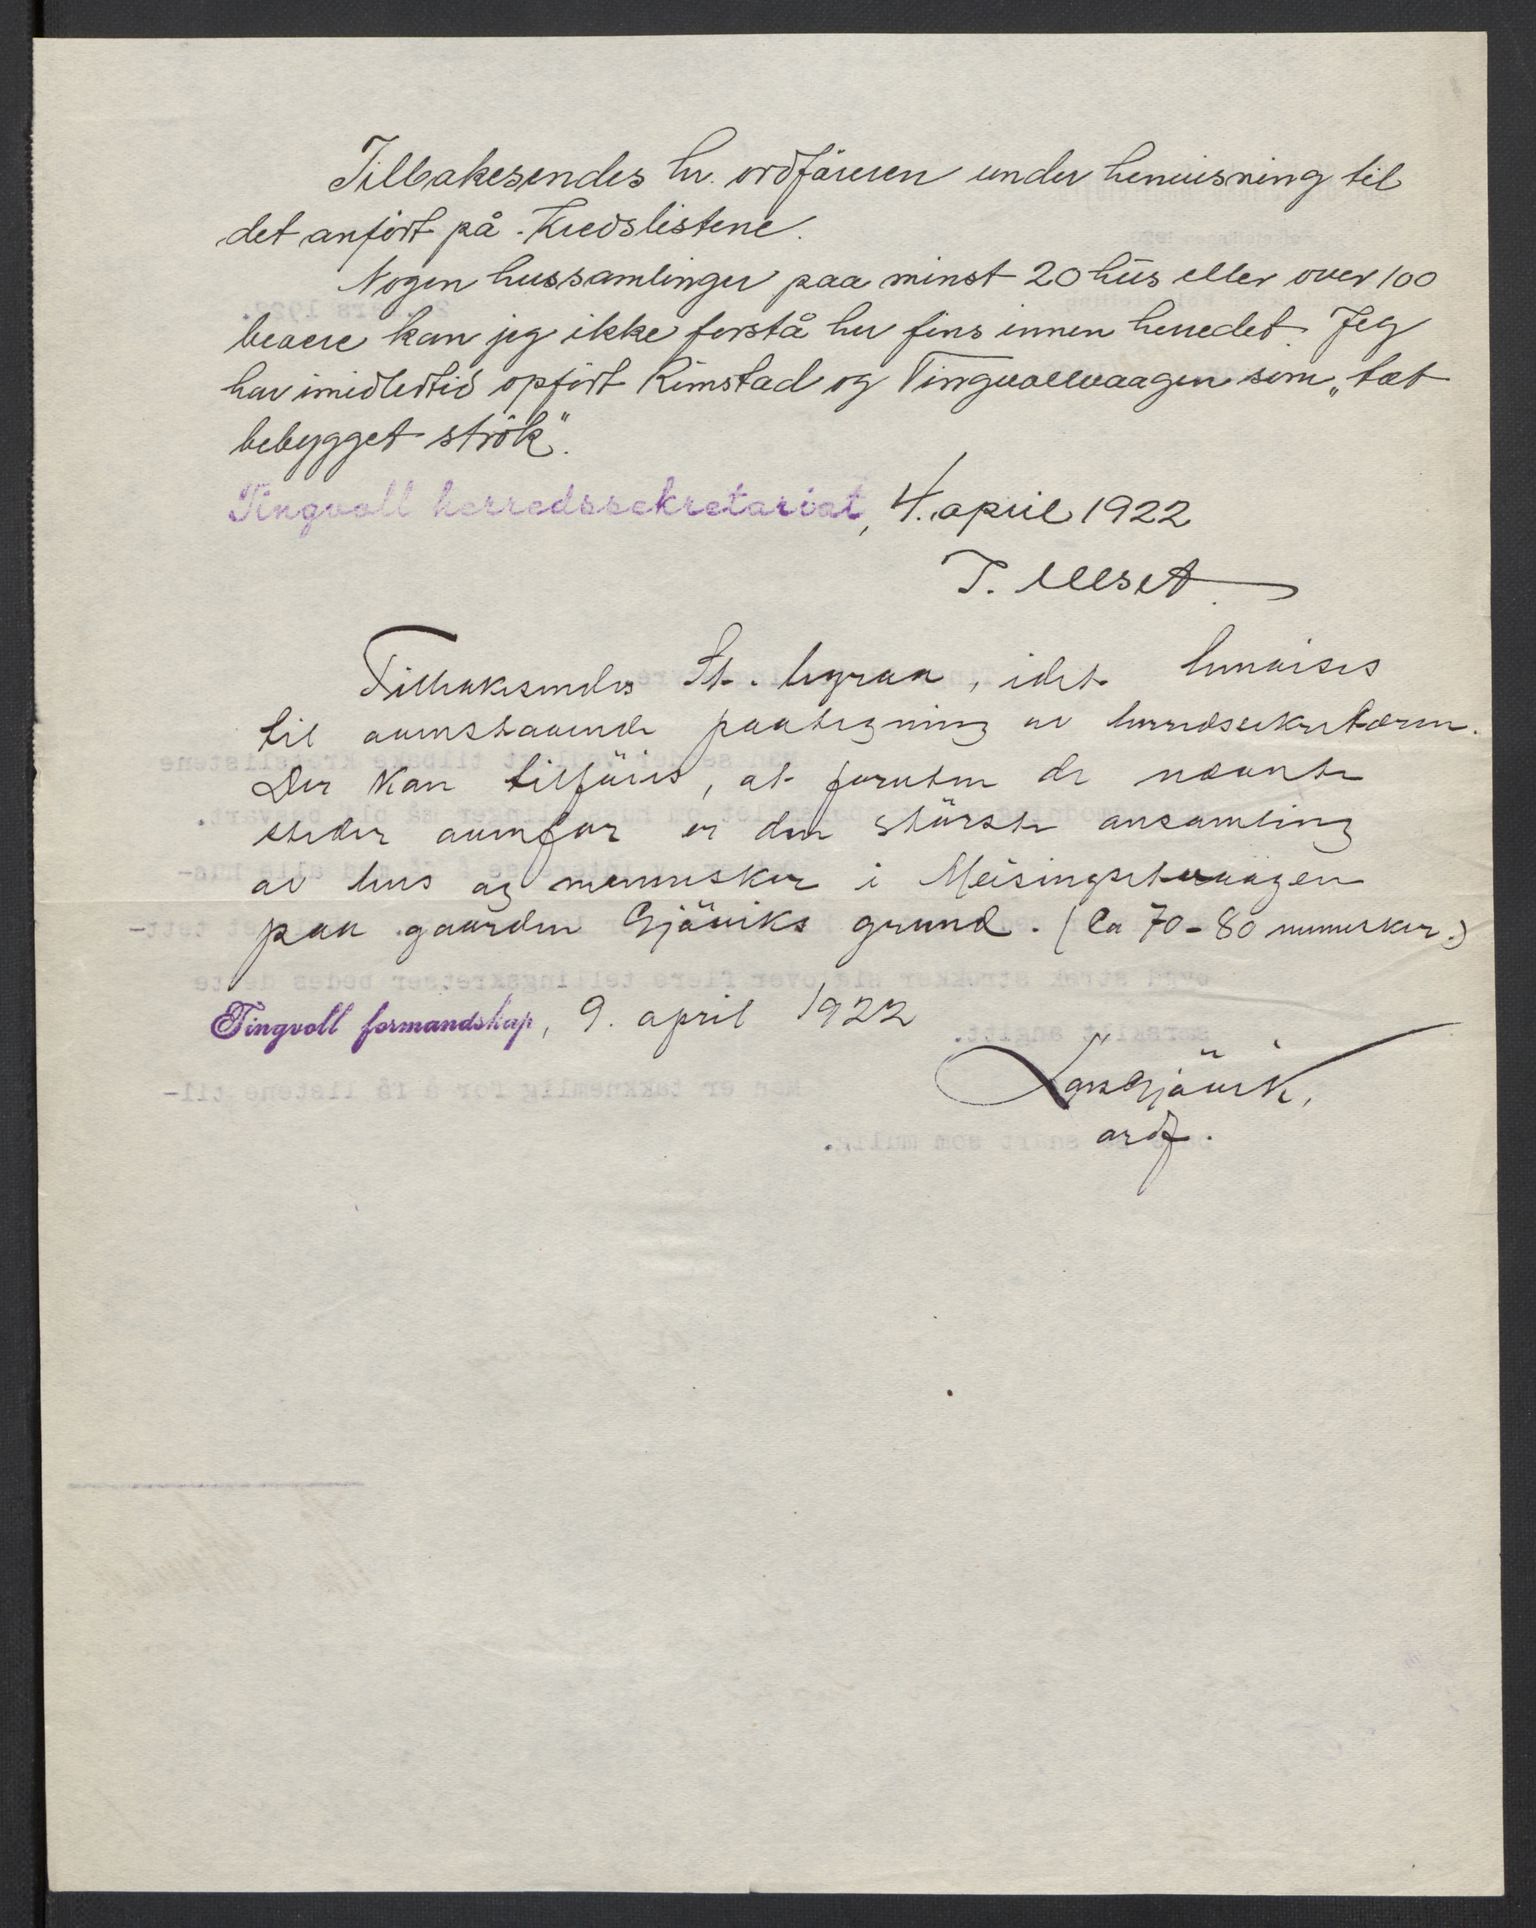 Tilbakesendes hr. ordföreren under henvisning til
det anført på Kredslistene.
Nogen hussamlinger paa minst 20 hus eller over 100
beboere kan jeg ikke forstå her fins innen herredet. Jeg
har imidlertid opført Rimstad og Tingvollvaagen som „tæt
bebygget strök".
Tingvoll herredssekretariat, 4. april 1922
T. Ulset
Tilbakesendes St. byraa, idet henvises
til ovenstaaende paategning av herredssekretæren.
Der kan tilföies, at foruten de nævnte
steder ovenfor er den störste ansamling
av hus og mennesker i Meisingsetvaagen
paa gaarden Gjöviks grund. (Ca 70-80 mennesker.)
Tingvoll formandskap, 9. april 1922
Lars Gjövik,
ordf.